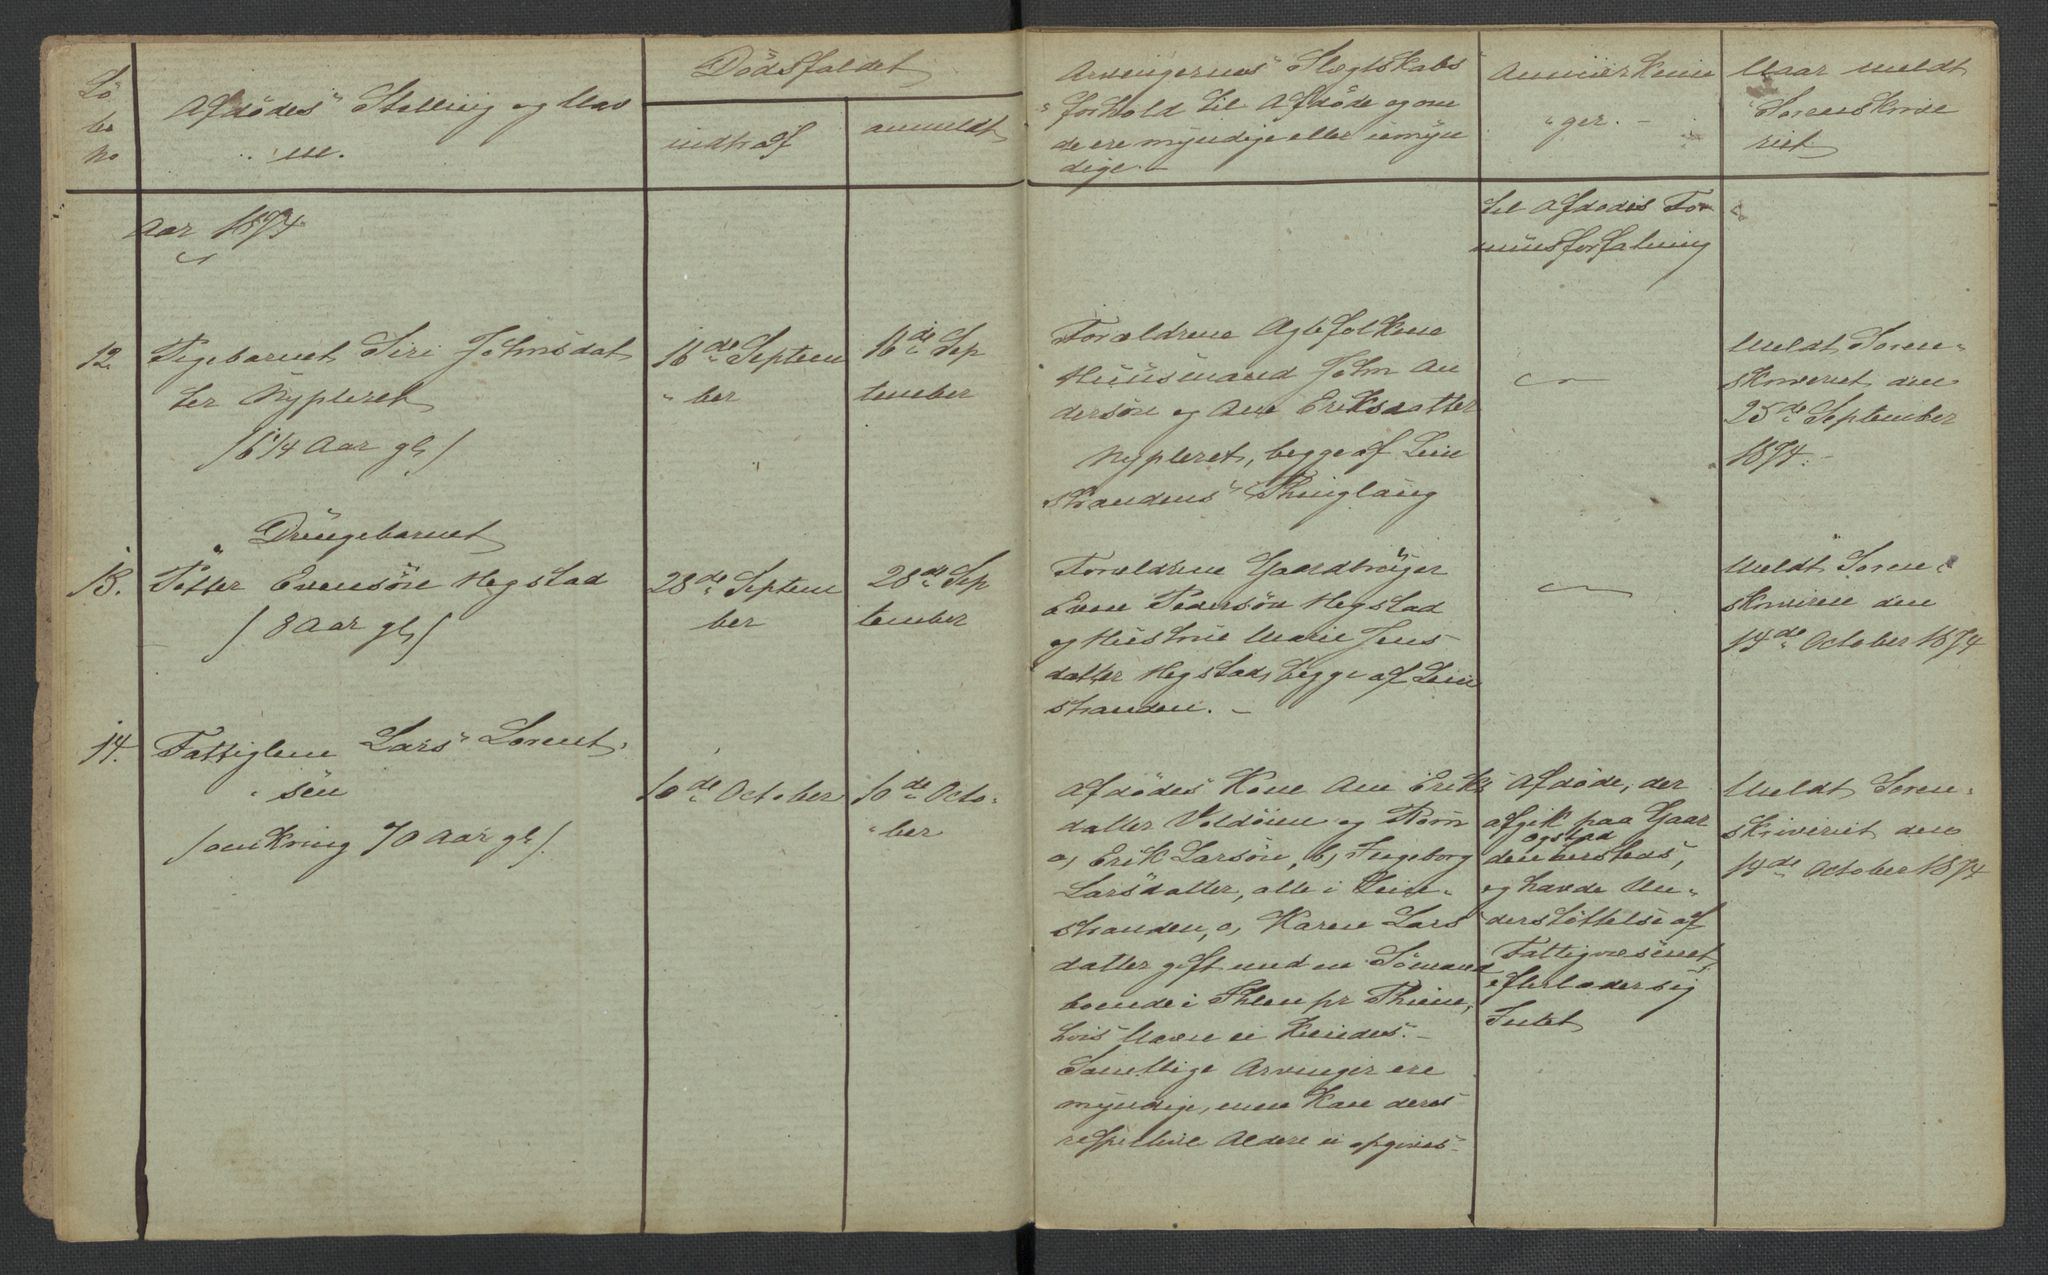 Lö
be
No
Afdödes Stelling og Nav
n.
Dödsfaldet
indtraf
anmeldt
Arvingernes Slegtskabs
forhold til Afdöde og om
de ere myndige eller umyn
dige. -
Anmærknin
ger. -
Naar meldt
Sorenskrive
riet
Aar 1874
til Afdödes For
muesforfatning
12.
Pigebarnet Siri Johnsdat
ter Nypleret
/6 1/4 Aar gl/
16de Septem
ber
16de Sep
tember
Forældrene Ægtefolkene
Huusmand John An
dersön og Ane Eriksdatter
Nypleret, begge af Lein
strandens Thinglaug
Meldt Soren-
skriveriet den
25de September
1874. -
Drengebarnet
13.
Petter Evensön Hegstad
/8 Aar gl/
28de Septem
ber
28de Sep
tember
Forældrene Gaardbruger
Even Pedersön Hegstad
og Hustrue Marie Jens
datter Hegstad, begge af Lein
stranden. -
Meldt Soren-
skriveren den
14de October 1874
14.
Fattiglem Lars Lorent
sen
/omkring 70 Aar gl/.
10de October
10de Octo-
ber
Afdödes Kone Ane Eriks
datter Voldöien og Börn
a, Erik Larsön, b, Ingeborg
Larsdatter, alle i Lein-
stranden, c, Karen Lars
datter gift med en Sömand
boende i Ihlen pr Thjem,
hvis Navn ei kjendes. -
Samtlige Arvinger ere
myndige, men kan deres
respektive Aldere ei opgives -
Afdöde, der
afgik paa Gaar
den
og havde Un-
derstöttelse af
Fattigvæsenet,
efterlader sig
Intet
Meldt Soren-
skriveriet den
14de October 1874